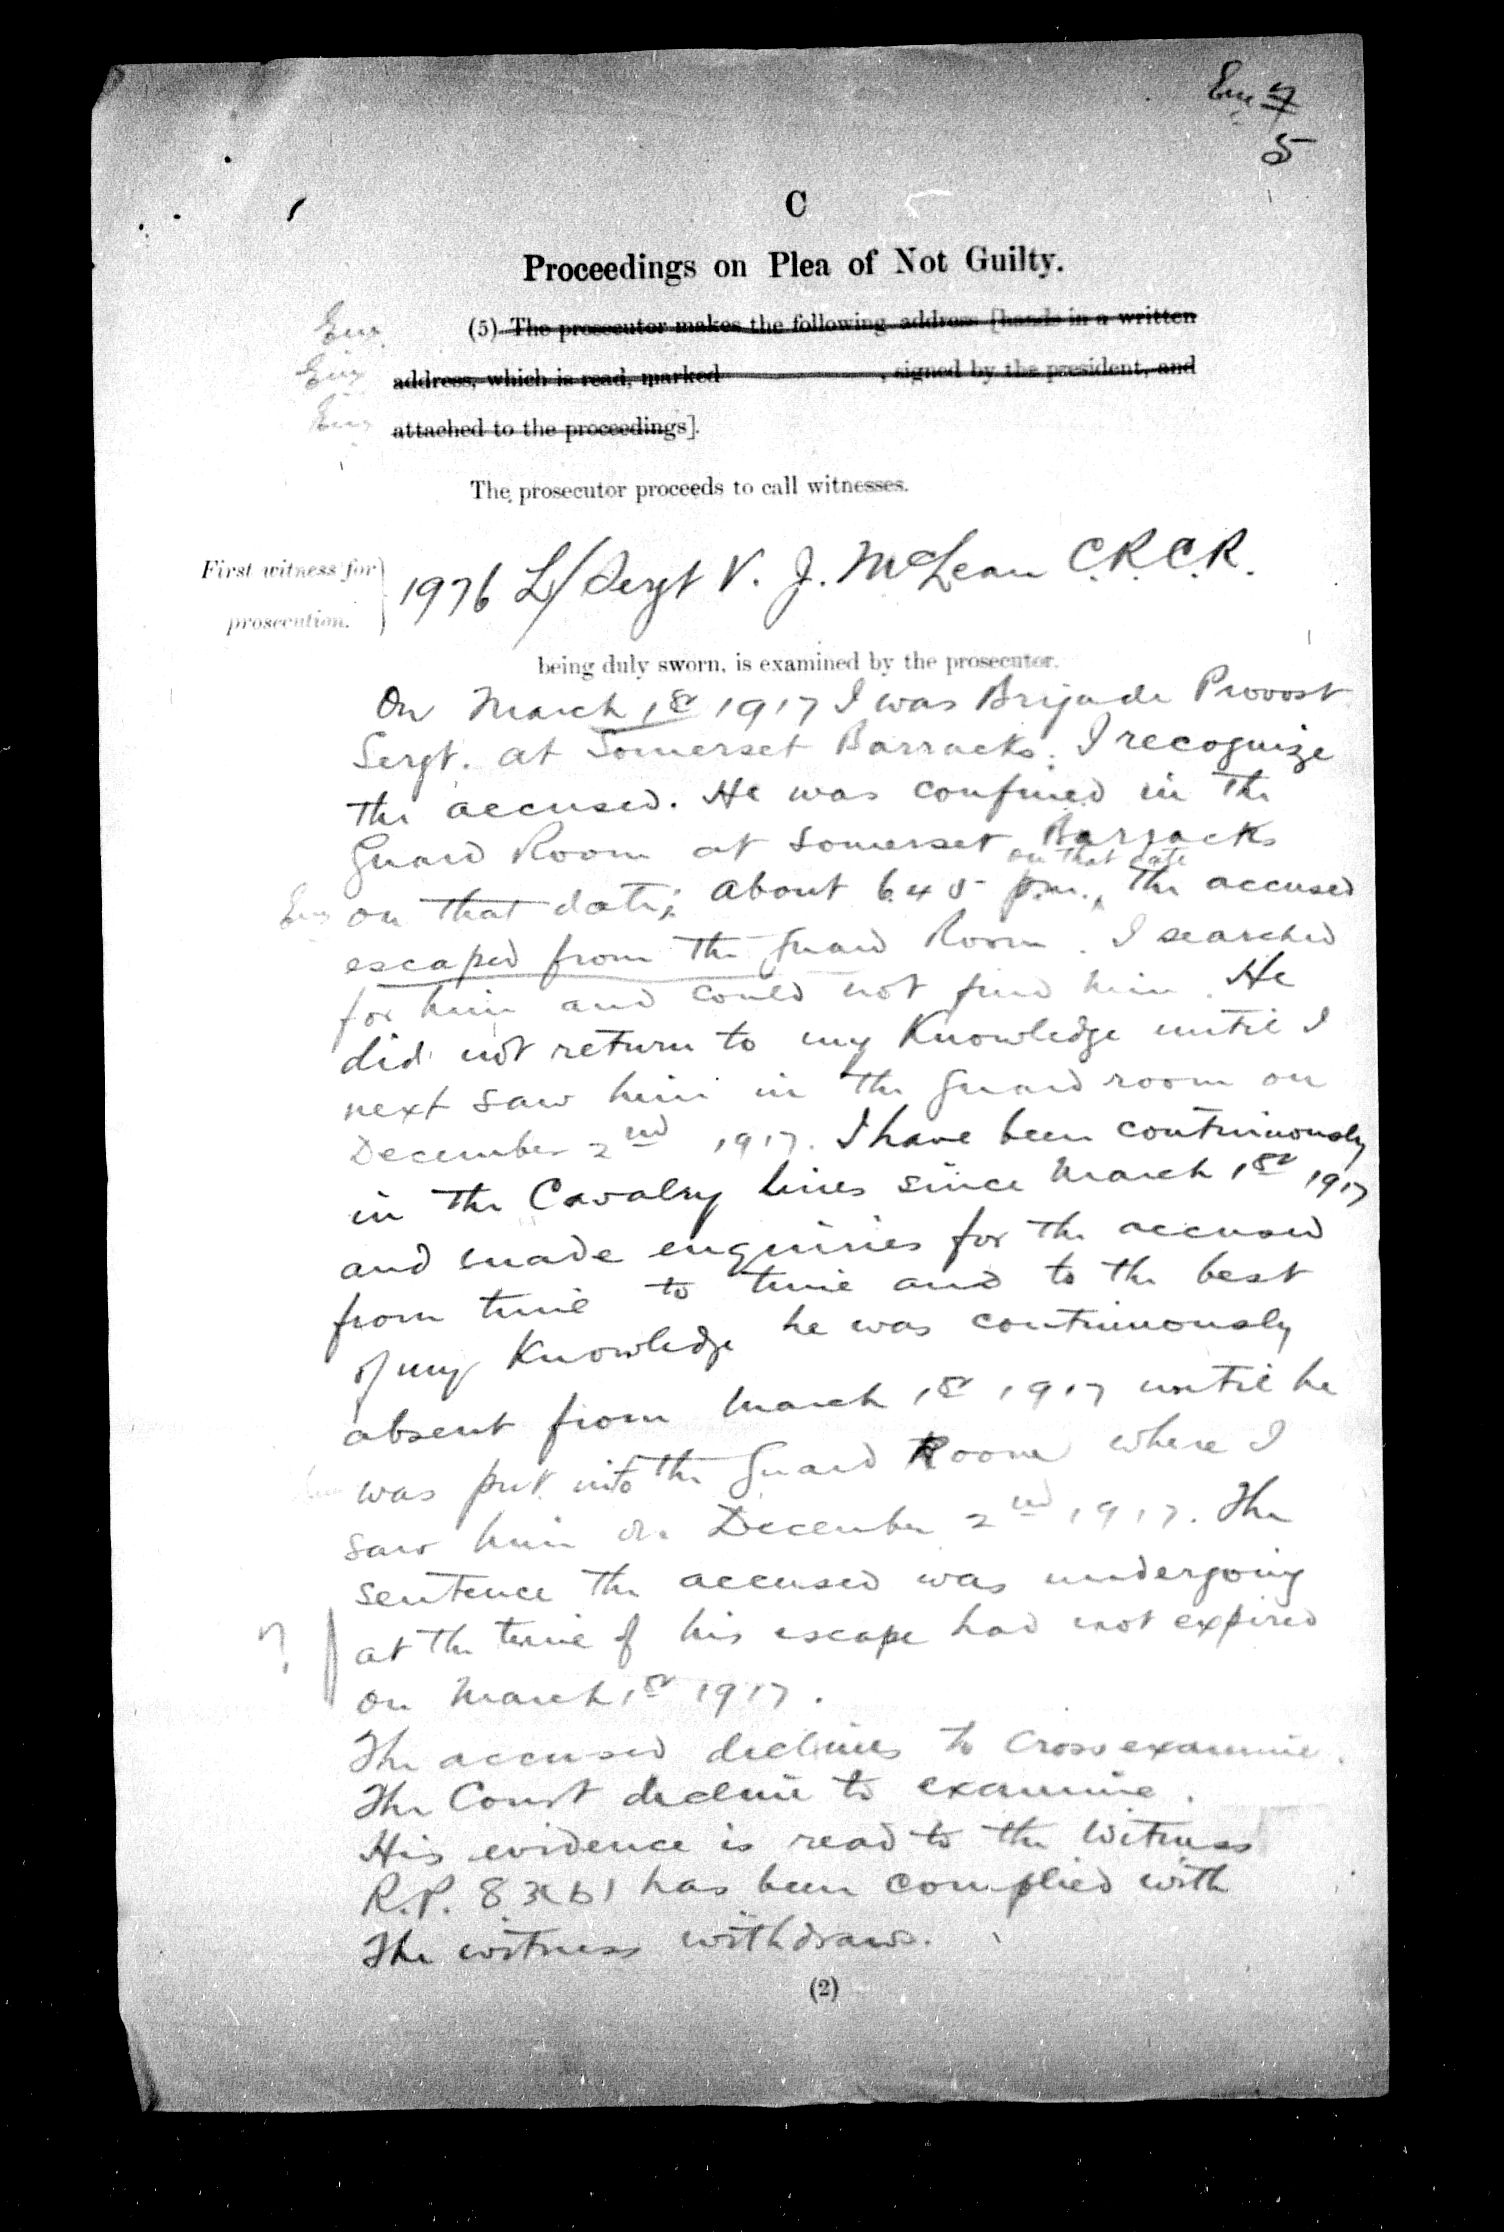 5
C
Proceedings on Plea of Not Guilty.
(5) The prosecutor makes the following address [hands in a written
address, which is read, marked , signed by the president, and
attached to the proceedings].
The prosecutor proceeds to call witnesses.
First witness for
prosecution.
1976 L/Sergt V. J. McLean C.R.C.R.
being duly sworn, is examined by the prosecutor.
On March 1st 1917 I was Brigade Provost
Sergt. at Somerset Barracks. I recognize
the accused. He was confined in the
Guard Room at Somerset Barracks
on that date
on that date; About 6.45 p.m., the accused
escaped from the Guard Room. I searched
for him and could not find him. He
did not return to my Knowledge until I
next saw him in the Guard room on
December 2nd 1917. I have been continuously
in the Cavalry lines since March 1st 1917
and made enquiries for the accused
from time to time and to the best
of my Knowledge he was continuously
absent from March 1st 1917 until he
was put into the Guard Room where I
saw him on December 2nd 1917. The
sentence the accused was undergoing
? at the time of his escape had not expired
on March 1st 1917.
The accused declines to cross examine.
The Court decline to examine.
His evidence is read to the witness
R.P. 83(b) has been complied with
The witness withdraws.
(2)